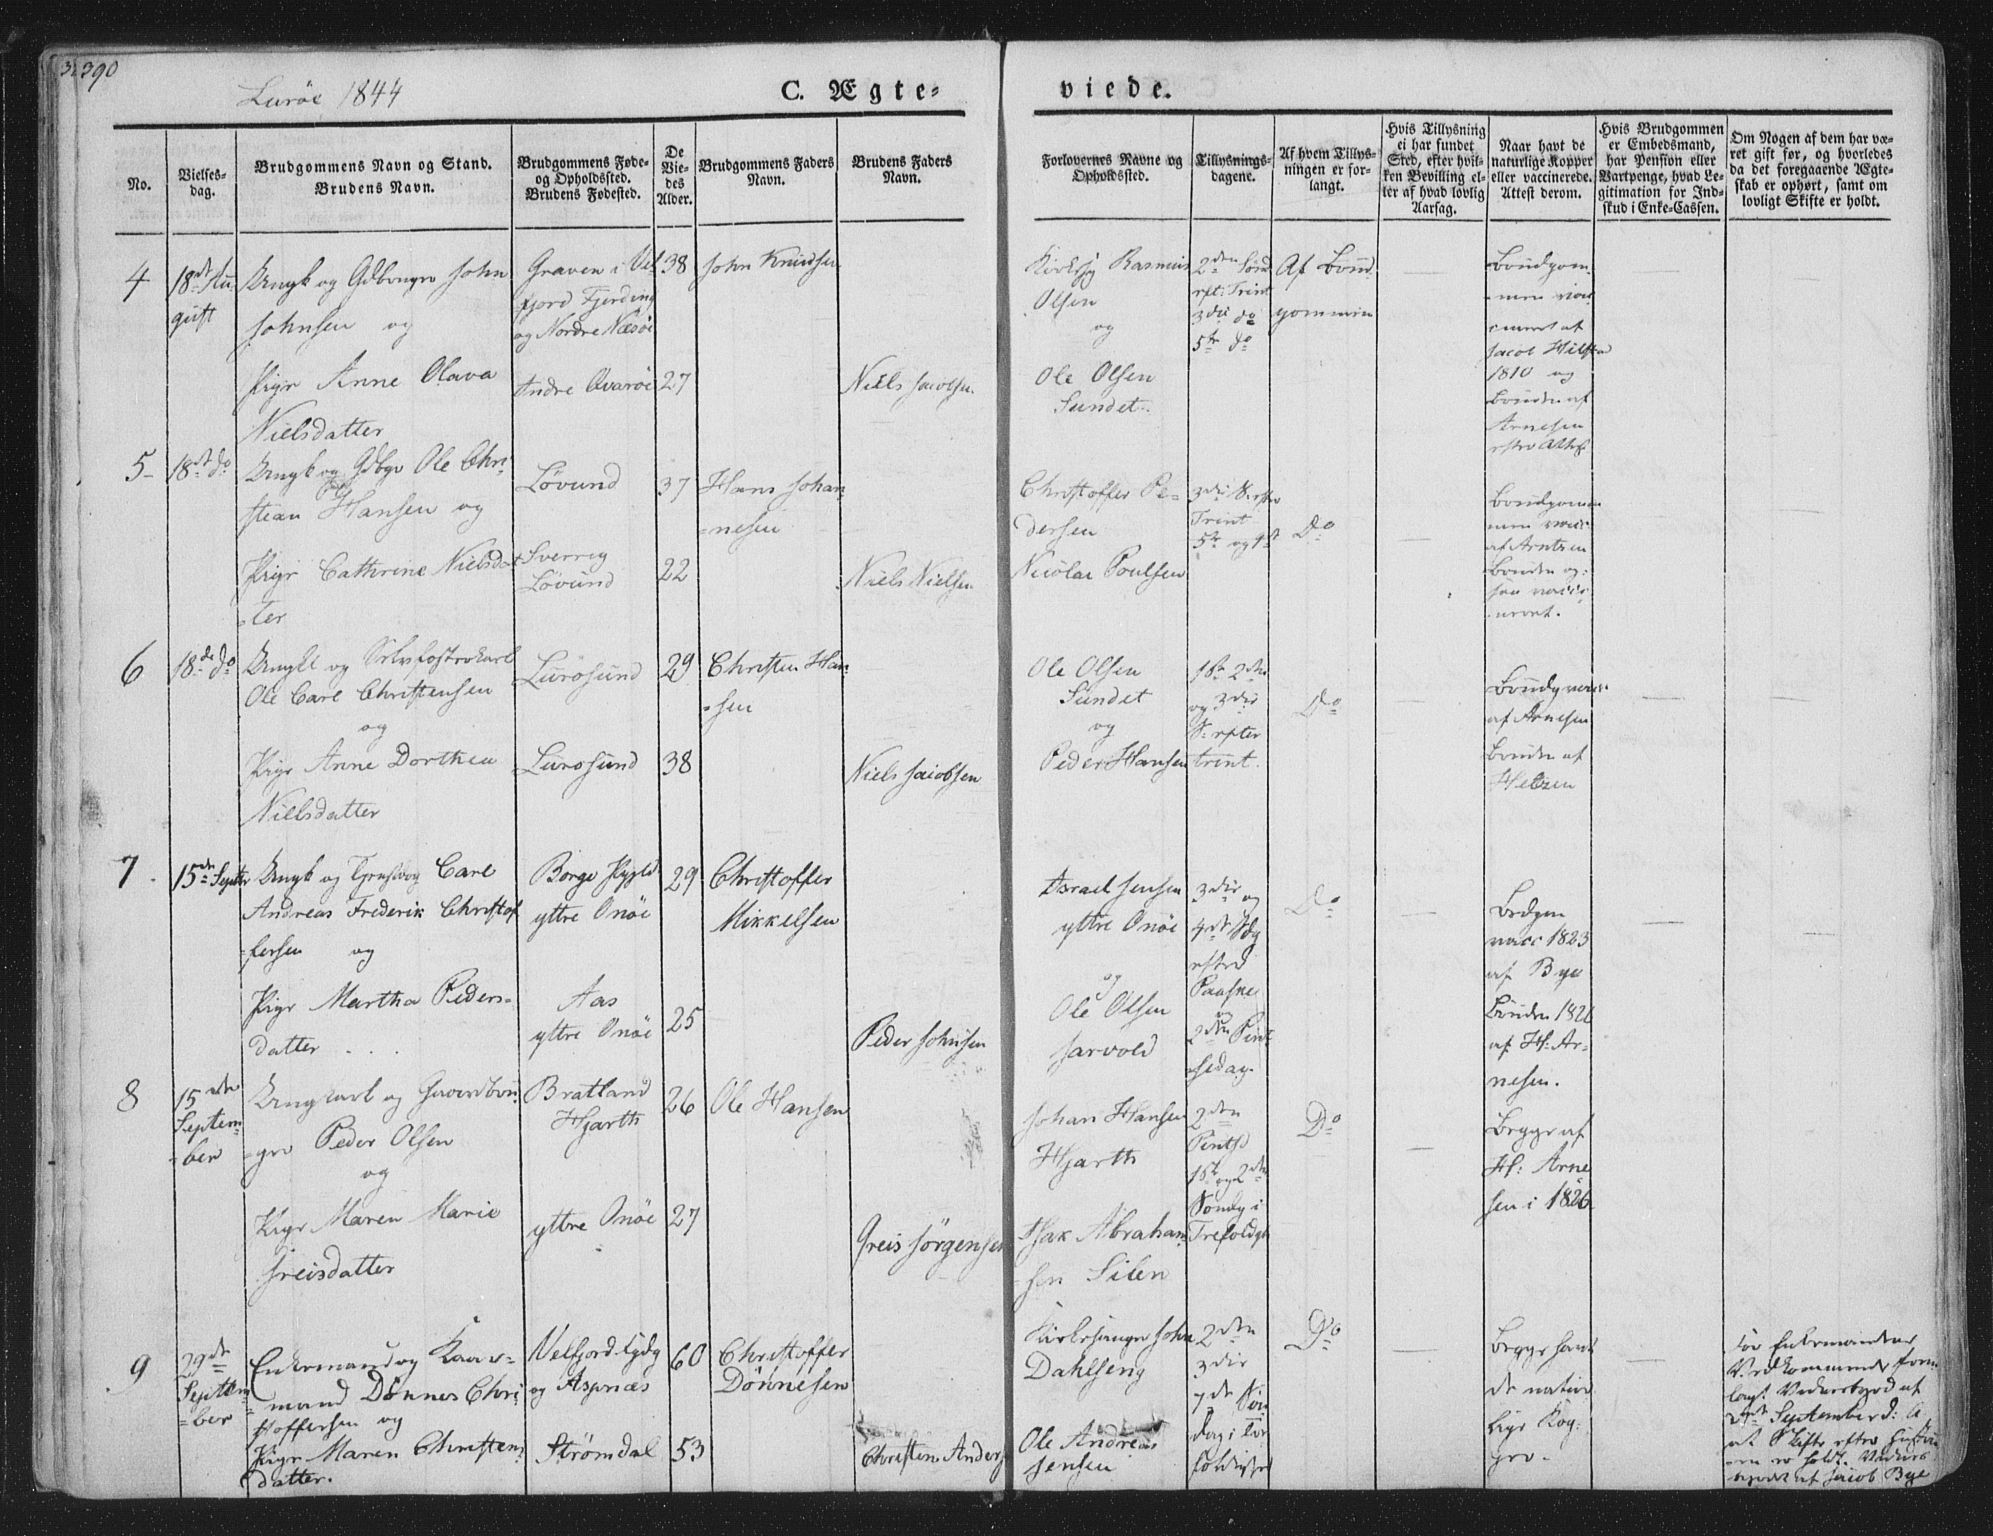 390
Lurøe 1844
C. Ægte-
viede.
No.
Vielses-
dag.
Brudgommens Navn og Stand.
Brudens Navn.
Brudgommens Føde-
og Opholdssted.
Brudens Fødested.
De
Vie-
des
Alder.
Brudgommens Faders
Navn.
Brudens Faders
Navn.
Forlovernes Navne og
Opholdssted.
Tillysnings-
dagene.
Af hvem Tillys-
ningen er for-
langt.
Hvis Tillysning
ei har fundet
Sted, efter hvil-
ken Bevilling el-
ler af hvad lovlig
Aarsag.
Naar havt de
naturlige Kopper
eller vaccinerede.
Attest derom.
Hvis Brudgommen
er Embedsmand,
har Pension eller
Vartpenge, hvad Le-
gitimation for Ind-
skud i Enke-Cassen.
Om Nogen af dem har væ-
ret gift før, og hvorledes
da det foregaaende Ægte-
skab er ophørt, samt om
lovligt Skifte er holdt.
4
18de Au-
gust
Ungk og Gdbrugr John
Johnsen og
Pige Anne Olava
Nielsdatter
Graven i Vel
fjord Fjerding
og Nordre Næsøe
Indre Qvarøe
38
27
John Knudsen
Niels Jacobsen
Kirkesg Rasmus
Olsen
og
Ole Olsen
Sundet
2den Sønd
eft: Trint
3die do
5te do
Af Brud
gommen
Brudgom-
men vac
cineret af
Jacob
1810 og
Bruden af
Arnesen
efter Attest
5
18de do
Ungk og Gdbgr Ole Chri-
stean Hansen og
Pige Cathrine Nielsdat
ter
Løvund
Sverrig
Løvund
37
22
Hans Johan
nesen
Niels Nielsen
Christoffer Pe-
dersen
Nicolai Poulsen
3die S. efter
Trint
5te og
Do
Brudgom
men vacc
af Arntzen
Bruden og-
saa vacci
neret.
6
18de do
Ungk og Selvfostrekarl
Ole Carl Christensen
og
Pige Anne Dorthea
Nielsdatter
Lurøsund
Lurøsund
29
38
Christen Han
sen
Niels Jacobsen
Ole Olsen
Sundet
og
Peder Hansen
1ste 2den
og 3die
S. efter
trint.
Do
Brudg vacc
af Arnesen
Bruden af
Heltzen
7
15de Septbr
Ungk og Carl
Andreas Frederik Christof
fersen og
Pige Martha Peders-
datter
Borge
yttre Onøe
Aas
yttre Onøe
29
25
Christoffer
Mikkelsen
Peder Johnsen
Israel Jensen
yttre Onøe
og
Ole Olsen
Sarvold
3die og
4de Sdg
efter
Paaske
og
2den Pint
sedag.
Do
Brdgm
vacc 1823
af Bye
Bruden 1826
af H: Ar-
nesen.
8
15de
Septem-
ber
Ungkarl og Gaardbru
ger Peder Olsen
og
Pige Maren Marie
Greisdatter
Bratland
Hjarth
yttre Onøe
26
27
Ole Hansen
Greis Jørgensen
Johan Hansen
Hjarth
Isak Abraham
sen Silen
2den
Pintsd
1ste og 2den
Søndg i
Trefoldgh
Do
Begge af
H: Arne
sen i 1826
9
29de
Septem
ber
Enkemand og Kaar-
mand Dønnes Chri
stoffersen og
Pige Maren Christens
datter.
Velfjord
og Aspnæs
Strømdal
60
53
Christoffer
Dønnesen
Christen Anders
Kirkesanger John
Dahlseng
Ole Andreas
Jensen
2den
3die
7de Søn
dag i Tre
foldighed
Do
Begge havt
de natur
lige Kop-
per.
For Enkemanden
Vedkommende frem
lagt Vidnesbyrd af
September d: A
at Skifte efter Hustru
en er holdt. Vidnes
byrdet af Jacob Bye